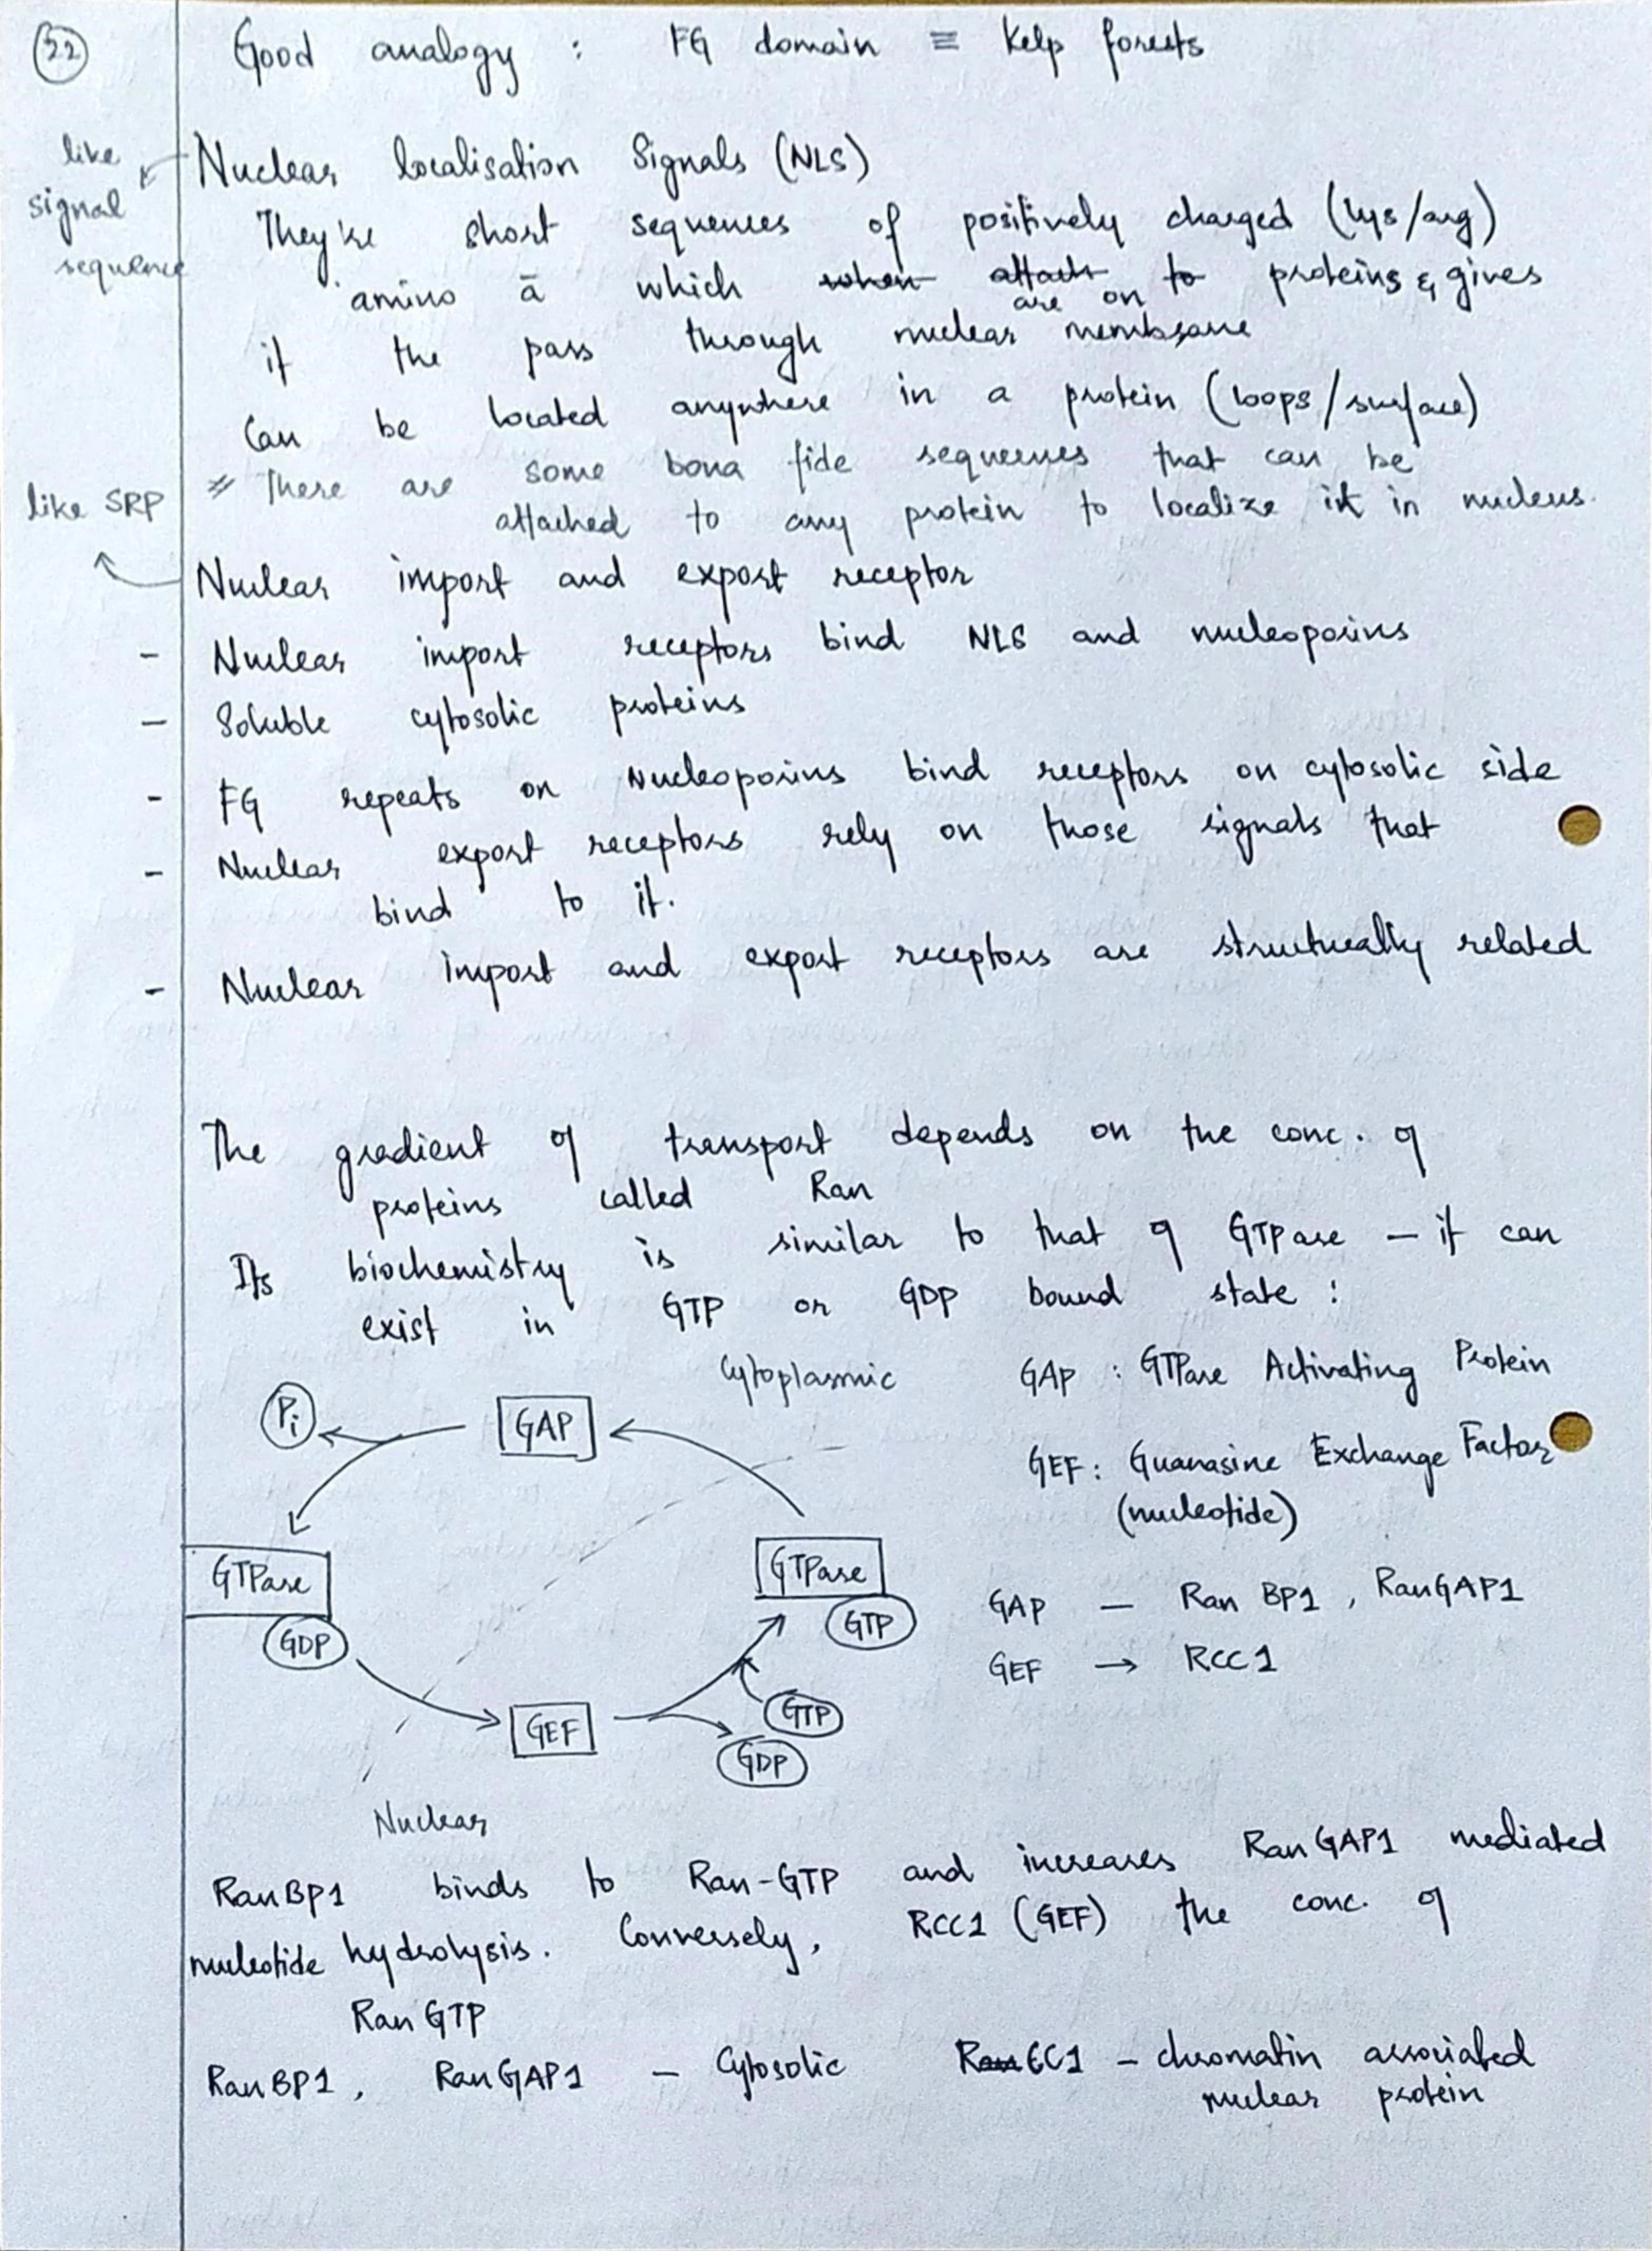 22
Good analogy : FG domain ≡ Kelp forests
like signal sequence
Nuclear localisation Signals (NLS)
They're short sequences of positively charged (lys/arg)
amino ā which when attach to proteins & gives
are on
it the pass through nuclear membrane
Can be located anywhere in a protein (loops/surface)
There are some bona fide sequences that can be
attached to any protein to localize it in nucleus.
like SRP
Nuclear import and export receptor
- Nuclear import receptors bind NLS and nucleoporins
- Soluble cytosolic proteins
- FG repeats on Nucleoporins bind receptors on cytosolic side
- Nuclear export receptors rely on those signals that
bind to it.
- Nuclear import and export receptors are structurally related
The gradient of transport depends on the conc. of
proteins called Ran
Its biochemistry is similar to that of GTPase – it can
exist in GTP or GDP bound state :
Cytoplasmic
GAP : GTPase Activating Protein
Pi
GAP
GEF : Guanasine Exchange Factor
(nucleotide)
GTPase
GDP
GTPase
GTP
GAP – Ran BP1 , RanGAP1
GEF → RCC1
GEF
GTP
GDP
Nuclear
RanBP1 binds to Ran-GTP and increases RanGAP1 mediated
nucleotide hydrolysis. Conversely, RCC1 (GEF) the conc. of
Ran GTP
RanBP1 , RanGAP1 – Cytosolic
RanCC1 – chromatin associated
nuclear protein